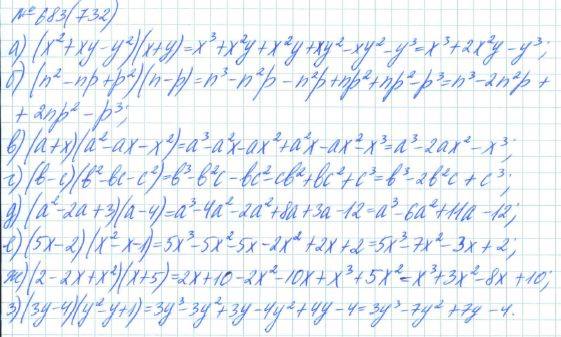 № 683(732)
а) (x²+xy-y²)(x+y)=x³+x²y+x²y+xy²-xy²-y³=x³+2x²y-y³;
б) (n²-np+p²)(n-p)=n³-n²p-n²p+np²+np²-p³=n³-2n²p+
+2np²-p³;
в) (a+x)(a²-ax-x²)=a³-a²x-ax²+a²x-ax²-x³=a³-2ax²-x³;
г) (b-c)(b²-bc-c²)=b³-b²c-bc²-cb²+bc²+c³=b³-2b²c+c³;
д) (a²-2a+3)(a-4)=a³-4a²-2a²+8a+3a-12=a³-6a²+11a-12;
е) (5x-2)(x²-x-1)=5x³-5x²-5x-2x²+2x+2=5x³-7x²-3x+2;
ж) (2-2x+x²)(x+5)=2x+10-2x²-10x+x³+5x²=x³+3x²-8x+10;
з) (3y-4)(y²-y+1)=3y³-3y²+3y-4y²+4y-4=3y³-7y²+7y-4.